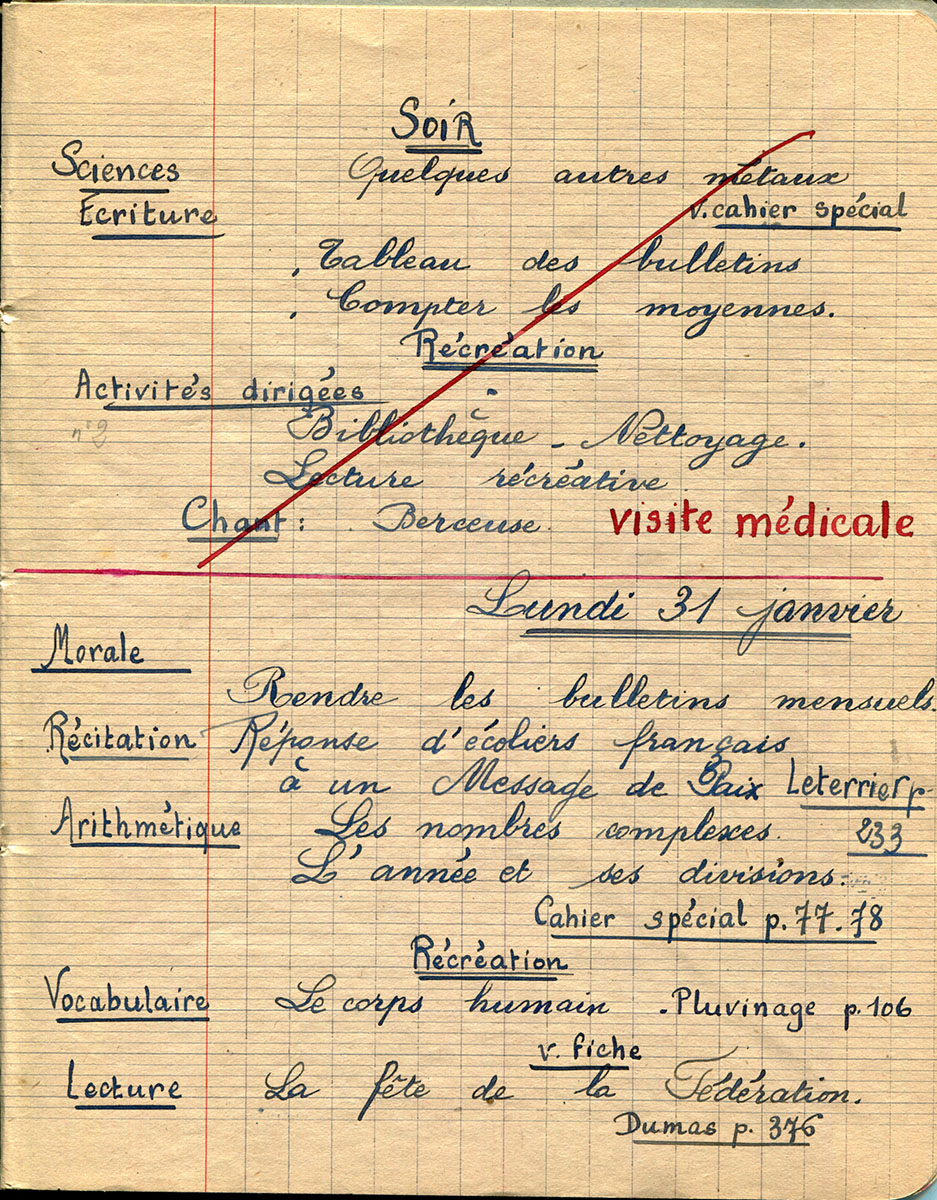 SoiR
Sciences Quelques autres métaux
Ecriture v. cahier spécial
. Tableau des bulletins
. Compter les moyennes.
Récréation
Activités dirigées
n°2 Bibliothèque - Nettoyage.
Lecture récréative
Chant : Berceuse. visite médicale
Lundi 31 janvier
Morale
Rendre les bulletins mensuels.
Récitation Réponse d'écoliers français
à un Message de Paix Leterrier p.
Arithmétique Les nombres complexes. 233
L'année et ses divisions.
Cahier spécial p. 77. 78
Récréation
Vocabulaire Le corps humain . Pluvinage p. 106
v. fiche
Lecture La fête de la Fédération.
Dumas p. 376